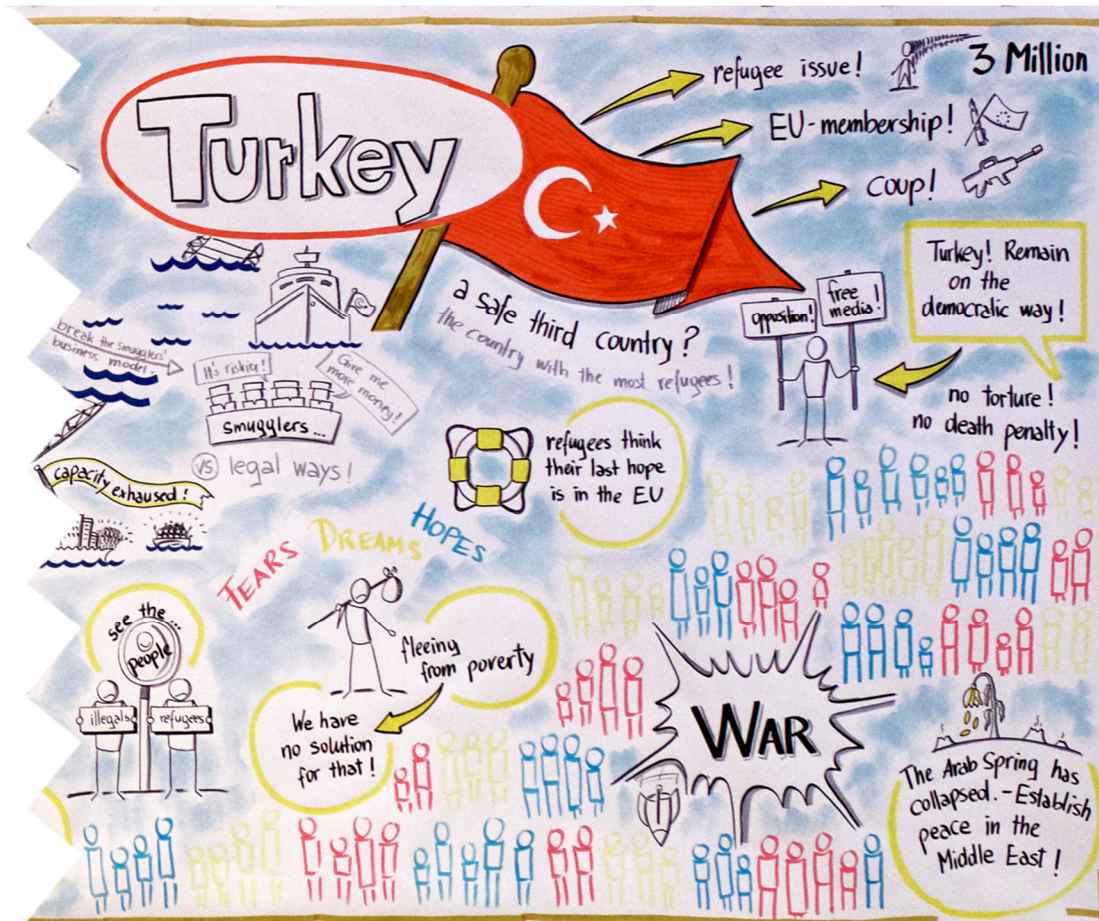 Turkey
refugee issue!
3 Million
EU-membership!
coup!
Turkey! Remain
on the
democralic way!
opposition!
free
media!
a safe third country?
the country with the most refugees!
no torture!
no death penalty!
break the smugglers'
business model.
It's riskier!
Give me
more money!
smugglers...
VS legal ways!
capacity exhaused!
refugees think
their last hope
is in the EU
FEARS DREAMS HOPES
see the...
people
illegals
refugees
fleeing
from poverty
We have
no solution
for that!
WAR
The Arab Spring has
collapsed. - Establish
peace in the
Middle East!